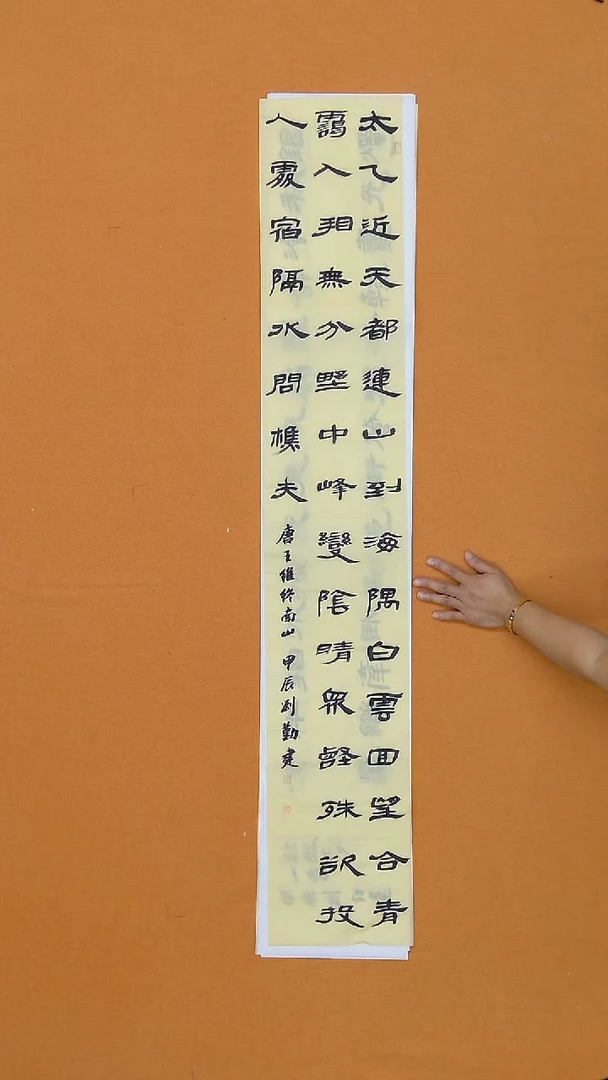 太乙近天都連山到海隅白雲回望合青
靄入看無分野中峰變陰晴眾壑殊欲投
人處宿隔水問樵夫
唐王維終南山 甲辰刘勤建